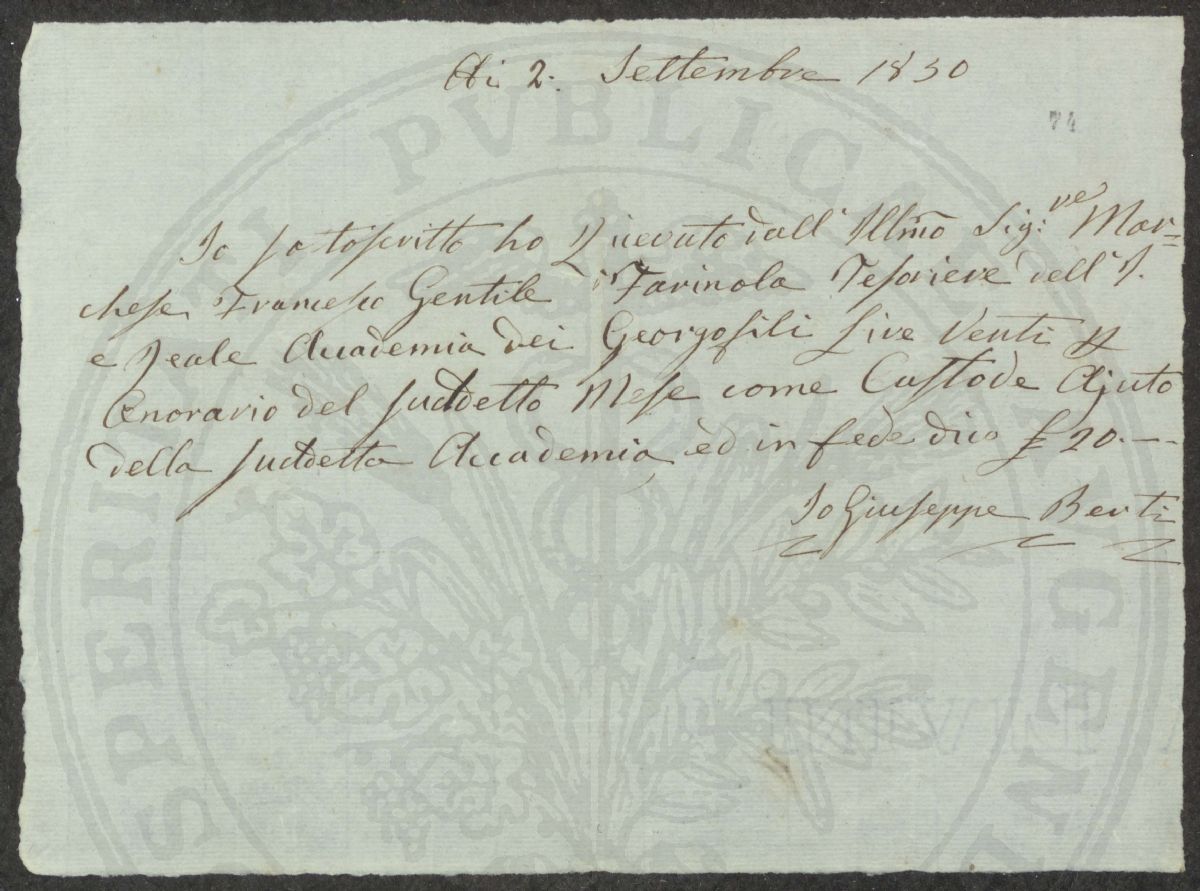 Ai 2. Settembre 1830
74
Io sotoscritto ho Ricevuto dall' Illmo Sig:re Mar=
chese Francesco Gentile Farinola Tesoriere dell' I.
e Reale Accademia dei Georgofili Lire Venti
Onorario del suddetto Mese come Custode Ajuto
della suddetta Accademia, ed in fede dico £ 20.--
Io Giuseppe Berti
PROSPERITATI PVBLICAE AVGENDAE